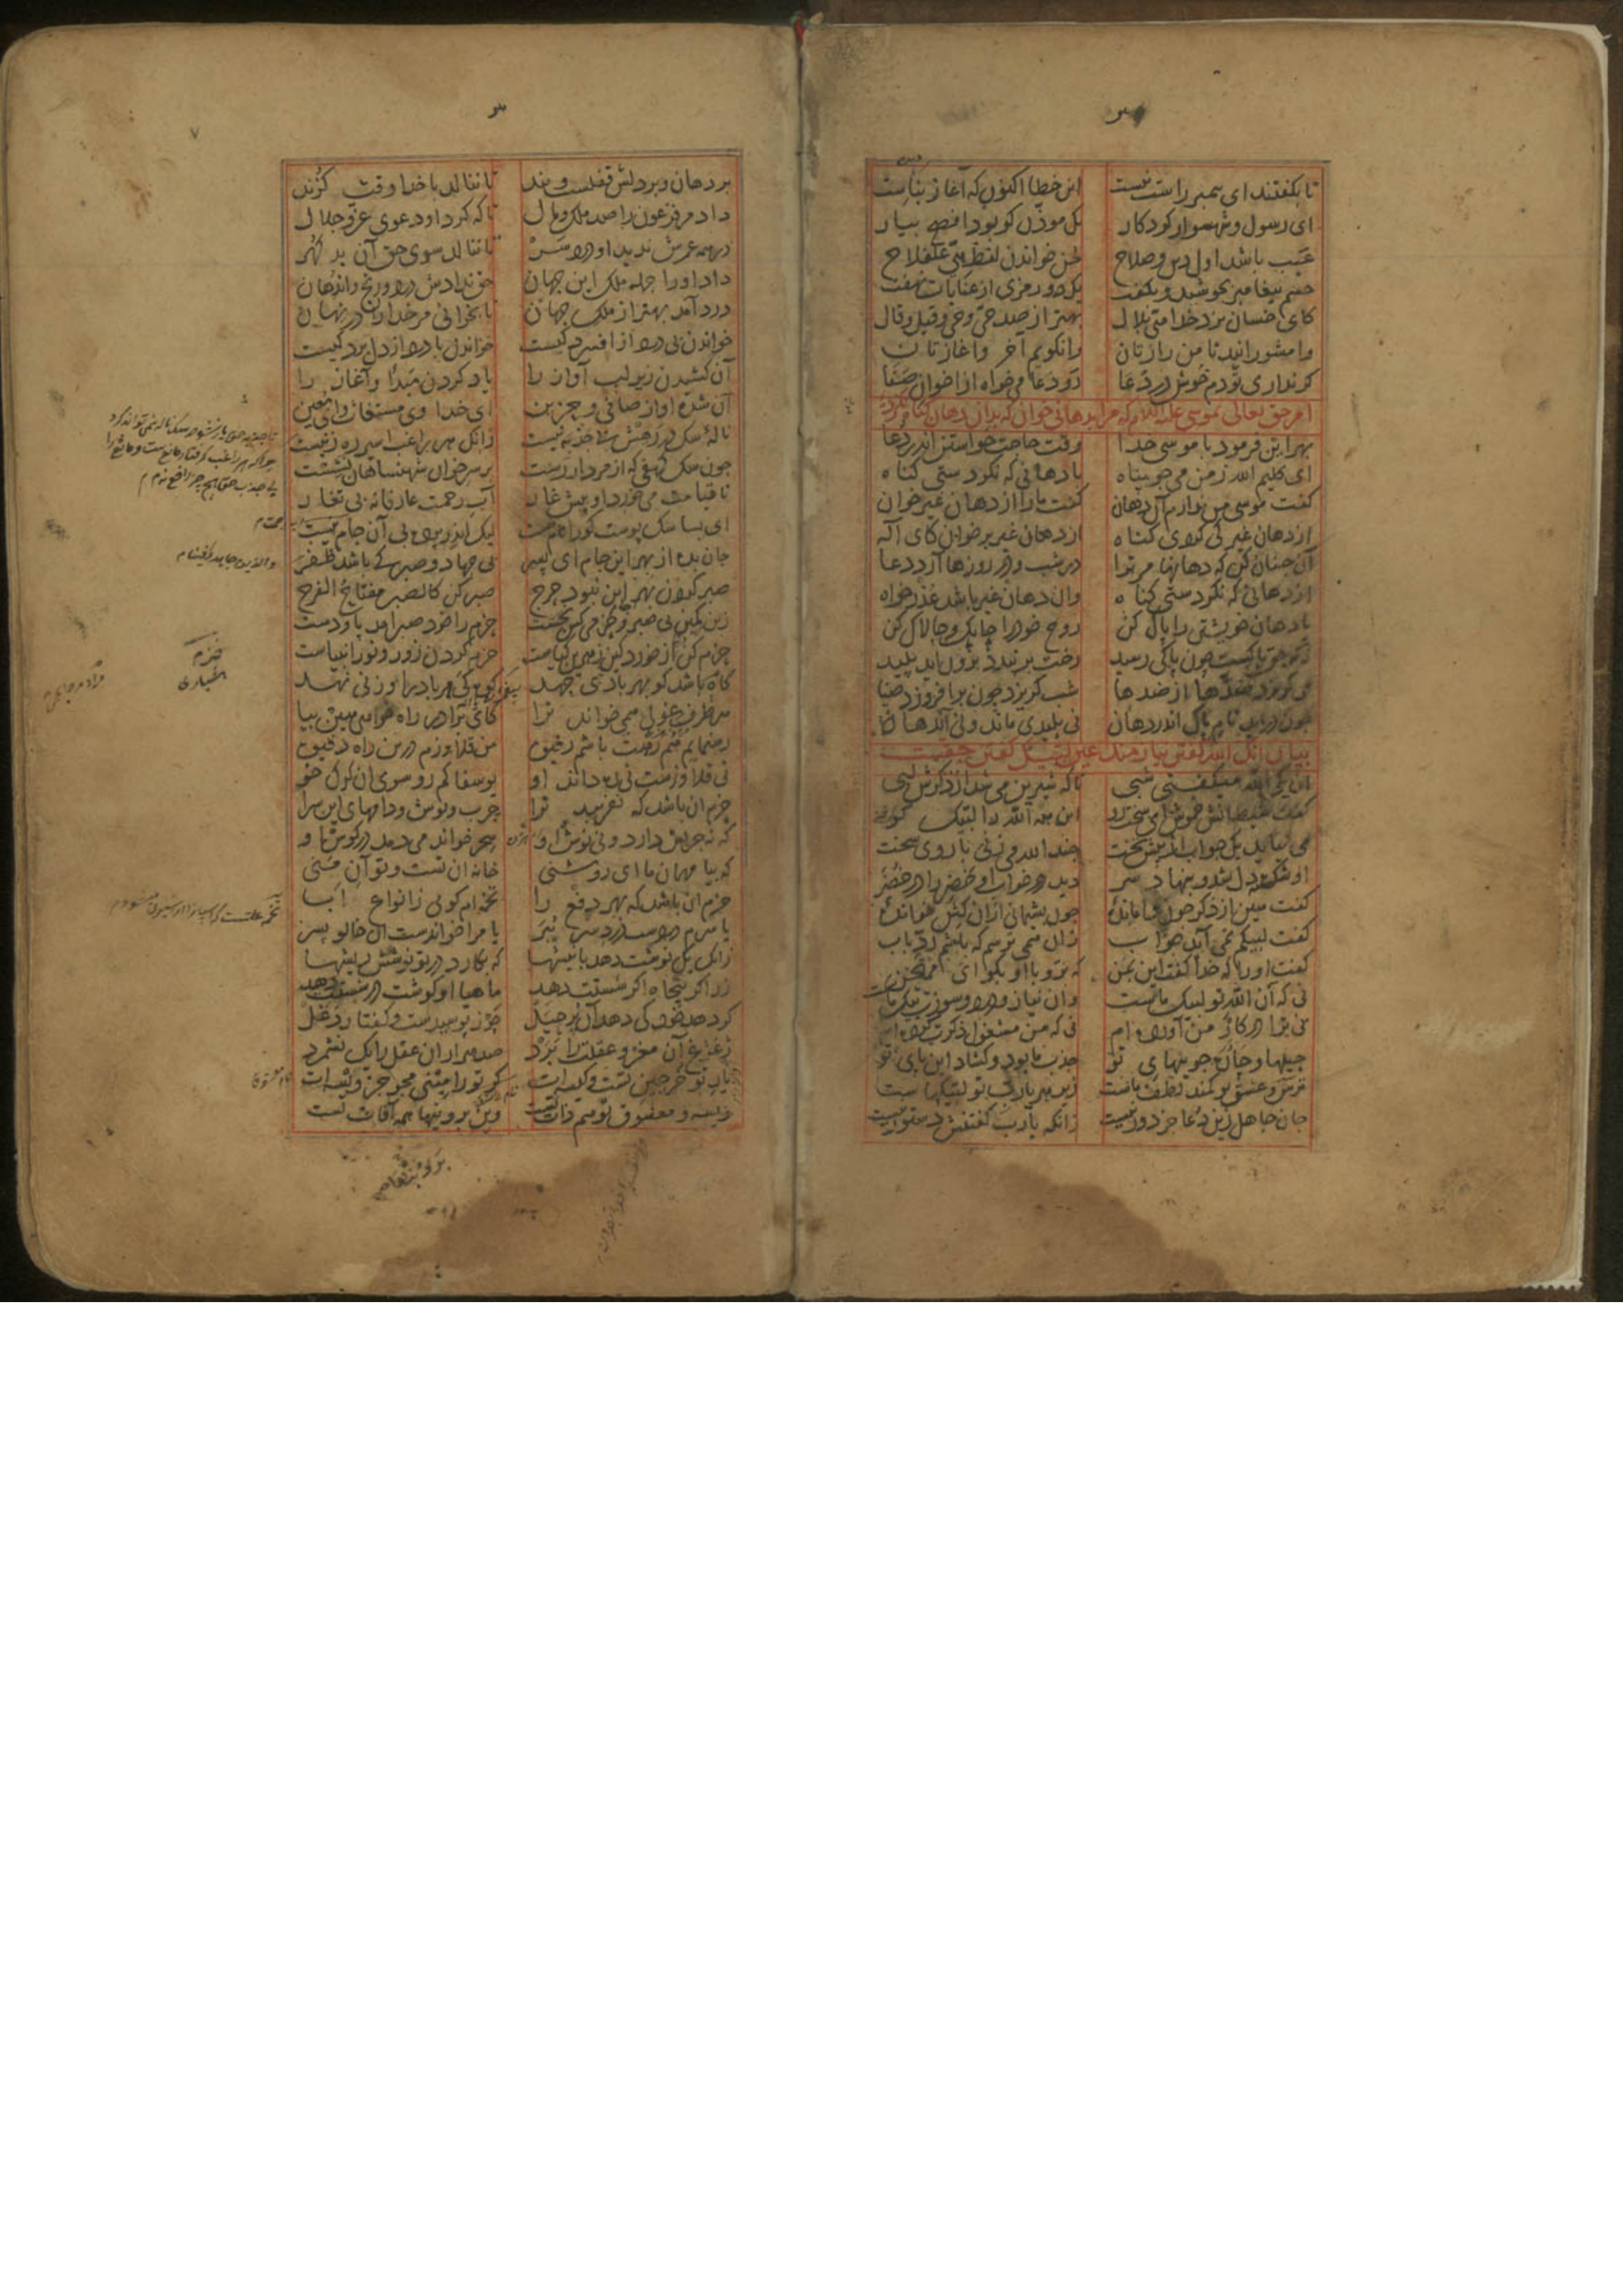 تا بگفتند ای پیمبر راست نیست این خطا اکنون که آغاز بناست
ای رسول و شهسوار کردکار یک موذن کو بود افصح بیار
عیب باشد اول دین و صلاح لحن خواندن لفظ حی علفلاح
خشم پیغامبر بجوشید و بگفت یک دو رمزی از عنایات نهفت
کای خسان نزد خدا هی بلال بهتر از صد حی و حی و قیل و قال
وامشورانید تا من رازتان وانگویم آخر و آغازتان
گر نداری تو دم خوش در دعا رو دعا می خواه از اخوان صفا
امر حق تعالی بموسی علیه السلام که مرا بدهانی خوان که بدان دهان گناه نکردۀ
بهر این فرمود با موسی خدا وقت حاجت خواستن اندر دعا
ای کلیم الله ز من می جو پناه با دهانی که نکردستی گناه
گفت موسی من ندارم آن دهان گفت ما را از دهان غیر خوان
از دهان غیر کی کردی گناه از دهان غیر بر خوان کای اله
آن چنان کن که دهانها مر ترا در شب و در روزها آرد دعا
از دهانی که نکردستی گناه وان دهان غیر باشد عذر خواه
یا دهان خویشتن را پاک کن روح خود را چابک و چالاک کن
ذکر حق پاکست چون پاکی رسید رخت بر بندد برون آید پلید
می گریزد ضدها از ضدها شب گریزد چون بر افروزد ضیا
چون درآید نام پاک اندر دهان نی پلیدی ماند و نی آن دهان
بیان آنک الله گفتن نیازمند عین لبیک گفتن حقست
آن یکی الله میگفتی شبی تا که شیرین می شد از ذکرش لبی
گفت شیطانش خموش ای سخت رو این همه الله را لبیک کو
می نیاید یک جواب از پیش تخت چند الله می زنی با روی سخت
او شکسته دل شد و بنهاد سر دید در خواب او خضر را در خضر
گفت هین از ذکر چون وا ماندۀ چون پشیمانی ازان کش خواندۀ
گفت لبیکم نمی آید جواب زان همی ترسم که باشم رد باب
گفت او را که خدا گفت این بمن که برو با او بگو ای ممتحن
نی که آن الله تو لبیک ماست وان نیاز و درد و سوزت پیک ماست
نی ترا در کار من آورده ام نی که من مشغول ذکرت کرده ام
حیلها و چاره جوییهای تو جذب ما بود و گشاد این پای تو
ترس و عشق تو کمند لطف ماست زیر هر یارب تو لبیکهاست
جان جاهل زین دعا جز دور نیست زانکه یارب گفتنش دستور نیست
بر دهان و بر دلش قفلست و بند تا ننالد با خدا وقت گزند
داد مر فرعون را صد ملک و مال تا که کرد او دعوی عز و جلال
در همه عمرش ندید او درد سر تا ننالد سوی حق آن بد گهر
داد او را جمله ملک این جهان حق ندادش درد و رنج و اندهان
درد آمد بهتر از ملک جهان تا بخوانی مر خدا را در نهان
خواندن بی درد از افسردگیست خواندن با درد از دل بردگیست
آن کشیدن زیر لب آواز را یاد کردن مبدا و آغاز را
آن شده آواز صافی و حزین ای خدا وی مستغاث و ای معین
نالۀ سگ در رهش بی جذبه نیست زانک هر راغب اسیر ره زنیست
چون سگ کهفی که از مردار رست بر سر خوان شهنشاهان نشست
تا قیامت می خورد او پیش غار آب رحمت عارفانه بی تغار
ای بسا سگ پوست کو را نام نیست لیک اندر پرده بی آن جام نیست
جان بده از بهر این جام ای پسر بی جهاد و صبر کی باشد ظفر
صبر کردن بهر این نبود حرج صبر کن کالصبر مفتاح الفرج
زین کمین بی صبر و حزمی کس نجست حزم را خود صبر آمد پا و دست
حزم کن از خورد کین زهرین گیاست حزم کردن زور و نور انبیاست
کاه باشد کو بهر بادی جهد کوه کی مر باد را وزنی نهد
هر طرف غولی همی خواند ترا کای برادر راه خواهی هین بیا
رهنمایم همرهت باشم رفیق من قلاوزم درین راه دقیق
نی قلاوزست نی ره داند او یوسفا کم رو سوی آن گرگ خو
حزم آن باشد که نفریبد ترا چرب و نوش و دامهای این سرا
که نه چربش دارد و نی نوش او سحر خواند می دمد در گوش او
که بیا مهمان ما ای روشنی خانه آن تست و تو آن منی
حزم آن باشد که بهر دفع را تخمه ام گویی ز انواع ابا
یا سرم دردست درد سر ببر یا مرا خواندست آن خالو پسر
زانک یک نوشت دهد با نیشها که بکارد در تو نوشش ریشها
زر اگر پنجاه اگر شستت دهد ماهیا او گوشت در شستت دهد
گر دهد خود کی دهد آن پر حیل جوز پوسیدست و گفتار دغل
ژغژغ آن مغز و عقلت را برد صد هزاران عقل را یک نشمرد
یار تو خرجین تست و کیسه ات گر تو رامینی مجو جز ویسه ات
ویسه و معشوق تو هم ذات تست وین برونیها همه آفات تست
حزم